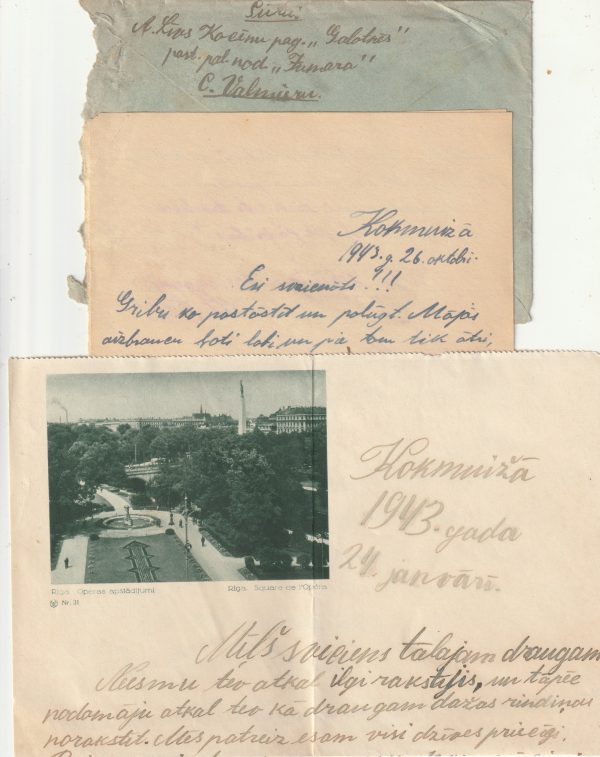 A. Liņs Kocēnu pag. „Galotnes"
past. pal. nod. „Jumara"
C. Valmieru.
Kokmuižā
1943. g. 26. oktobr.
Esi sveicināts!!!
Gribu ko pastāstīt un palūgt. Mājās
aizbraucu ļoti labi un pie tam tik ātri,
Rīga. Operas apstādījumi
Rīga. Square de l'Opéra
Nr. 31
Kokmuižā
1943. gada
24. janvārī.
Mīļš sveiciens tālajam draugam
Neesmu tev atkal ilgi rakstījis, un tāpēc
nodomāju atkal tev kā draugam dažas rindiņas
norakstīt. Mēs patreiz esam visi dzīves priecīgi.